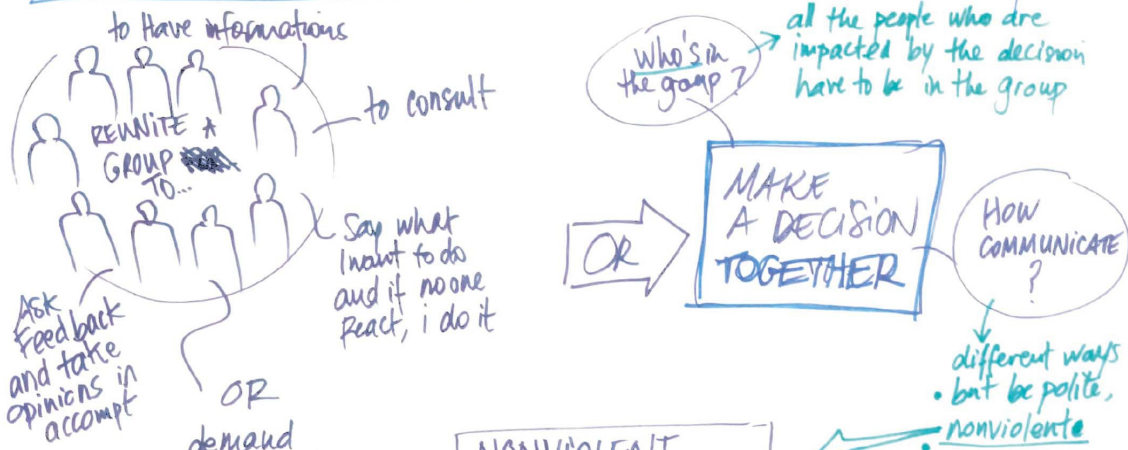 to Have informations
to consult
REUNITE A
GROUP
TO...
Say what
I want to do
and if no one
React, i do it
Ask
Feedback
and take
opinions in
accompt
OR
demand
OR
Who's in
the group?
all the people who are
impacted by the decision
have to be in the group
MAKE
A DECISION
TOGETHER
HOW
COMMUNICATE
?
different ways
• but be polite,
nonviolente
NONVIOLENT